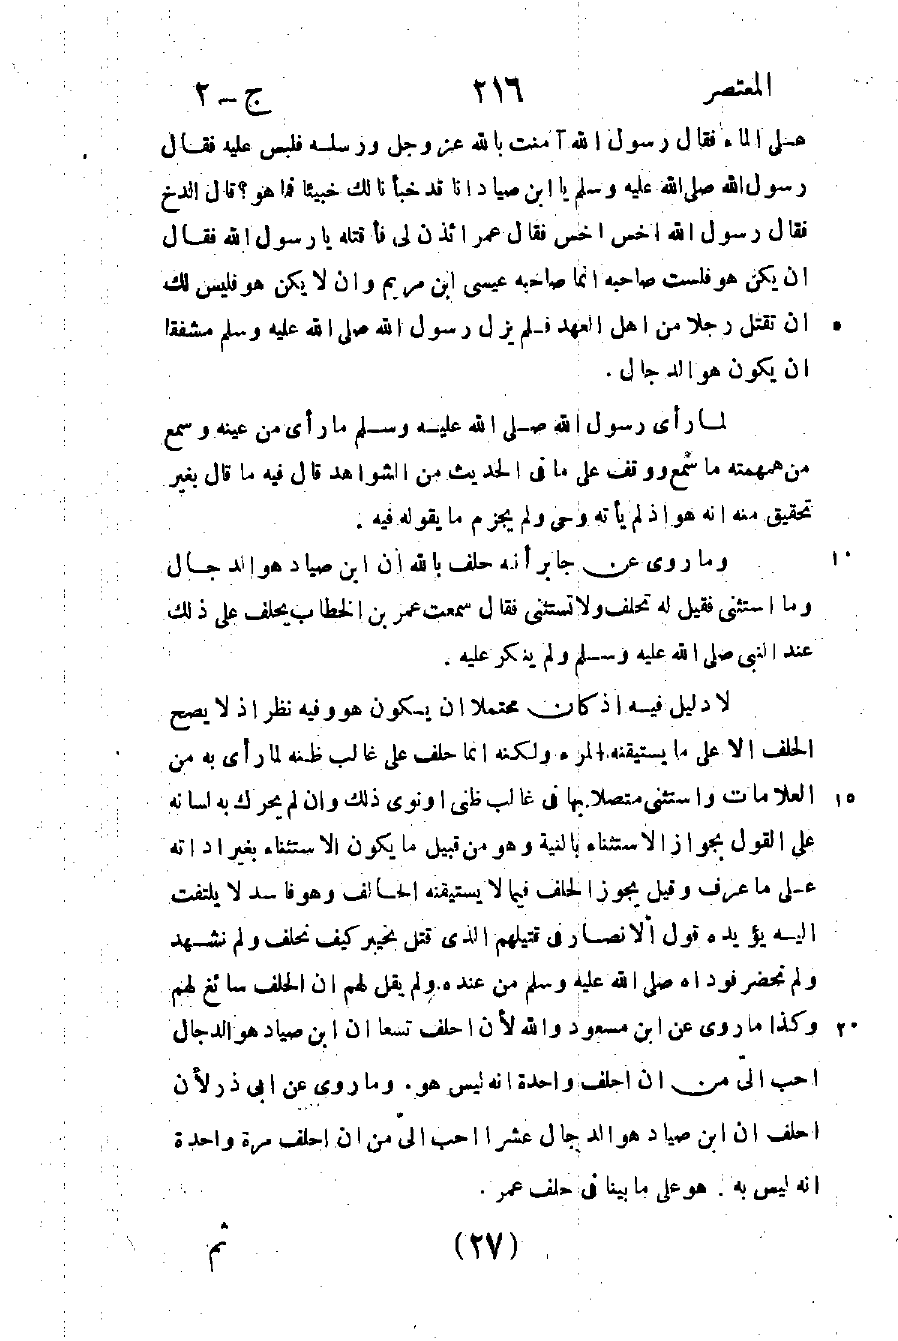 المعتصر ٢١٦ ج – ٢
على الماء فقال رسول الله آمنت بالله عز وجل ورسله فلبس عليه فقال
رسول الله صلى الله عليه وسلم يا ابن صياد انا قد خبأنا لك خبيئا فما هو؟ قال الدخ
فقال رسول الله اخس اخس فقال عمر ائذن لى فأقتله يا رسول الله فقال
ان يكن هو فلست صاحبه انما صاحبه عيسى ابن مريم وان لا يكن هو فليس لك
ان تقتل رجلا من اهل العهد فلم يزل رسول الله صلى الله عليه وسلم مشفقا ٥
ان يكون هو الدجال .
لما رأى رسول الله صلى الله عليه وسلم ما رأى من عينه وسمع
من همهمته ما سمع ووقف على ما فى الحديث من الشواهد قال فيه ما قال بغير
تحقيق منه انه هو اذ لم يأته وحى ولم يجزم ما يقوله فيه .
وما روى عن جابر أنه حلف بالله ان ابن صياد هو الدجال ١٠
وما استثنى فقيل له تحلف ولا تستثنى فقال سمعت عمر بن الخطاب يحلف على ذلك
عند النبى صلى الله عليه وسلم ولم ينكر عليه .
لا دليل فيه اذ كان محتملا ان يكون هو وفيه نظر اذ لا يصح
الحلف الا على ما يستيقنه المرء ولكنه انما حلف على غالب ظنه لما رأى به من
العلامات واستثنى متصلا بها فى غالب ظنى او نوى ذلك وان لم يحرك به لسانه ١٥
على القول بجواز الاستثناء بالنية وهو من قبيل ما يكون الاستثناء بغير اداته
على ما عرف وقيل يجوز الحلف فيما لا يستيقنه الحالف وهو فاسد لا يلتفت
اليه يؤيده قول الانصار فى قتيلهم الذى قتل بخيبر كيف نحلف ولم نشهد
ولم نحضر فوداه صلى الله عليه وسلم من عنده ولم يقل لهم ان الحلف سائغ لهم
وكذا ما روى عن ابن مسعود والله لأن احلف تسعا ان ابن صياد هو الدجال ٢٠
احب الىّ من ان احلف واحدة انه ليس هو . وما روى عن ابى ذر لأن
احلف ان ابن صياد هو الدجال عشرا احب الىّ من ان احلف مرة واحدة
انه ليس به . هو على ما بينا فى حلف عمر .
(٢٧) ثم